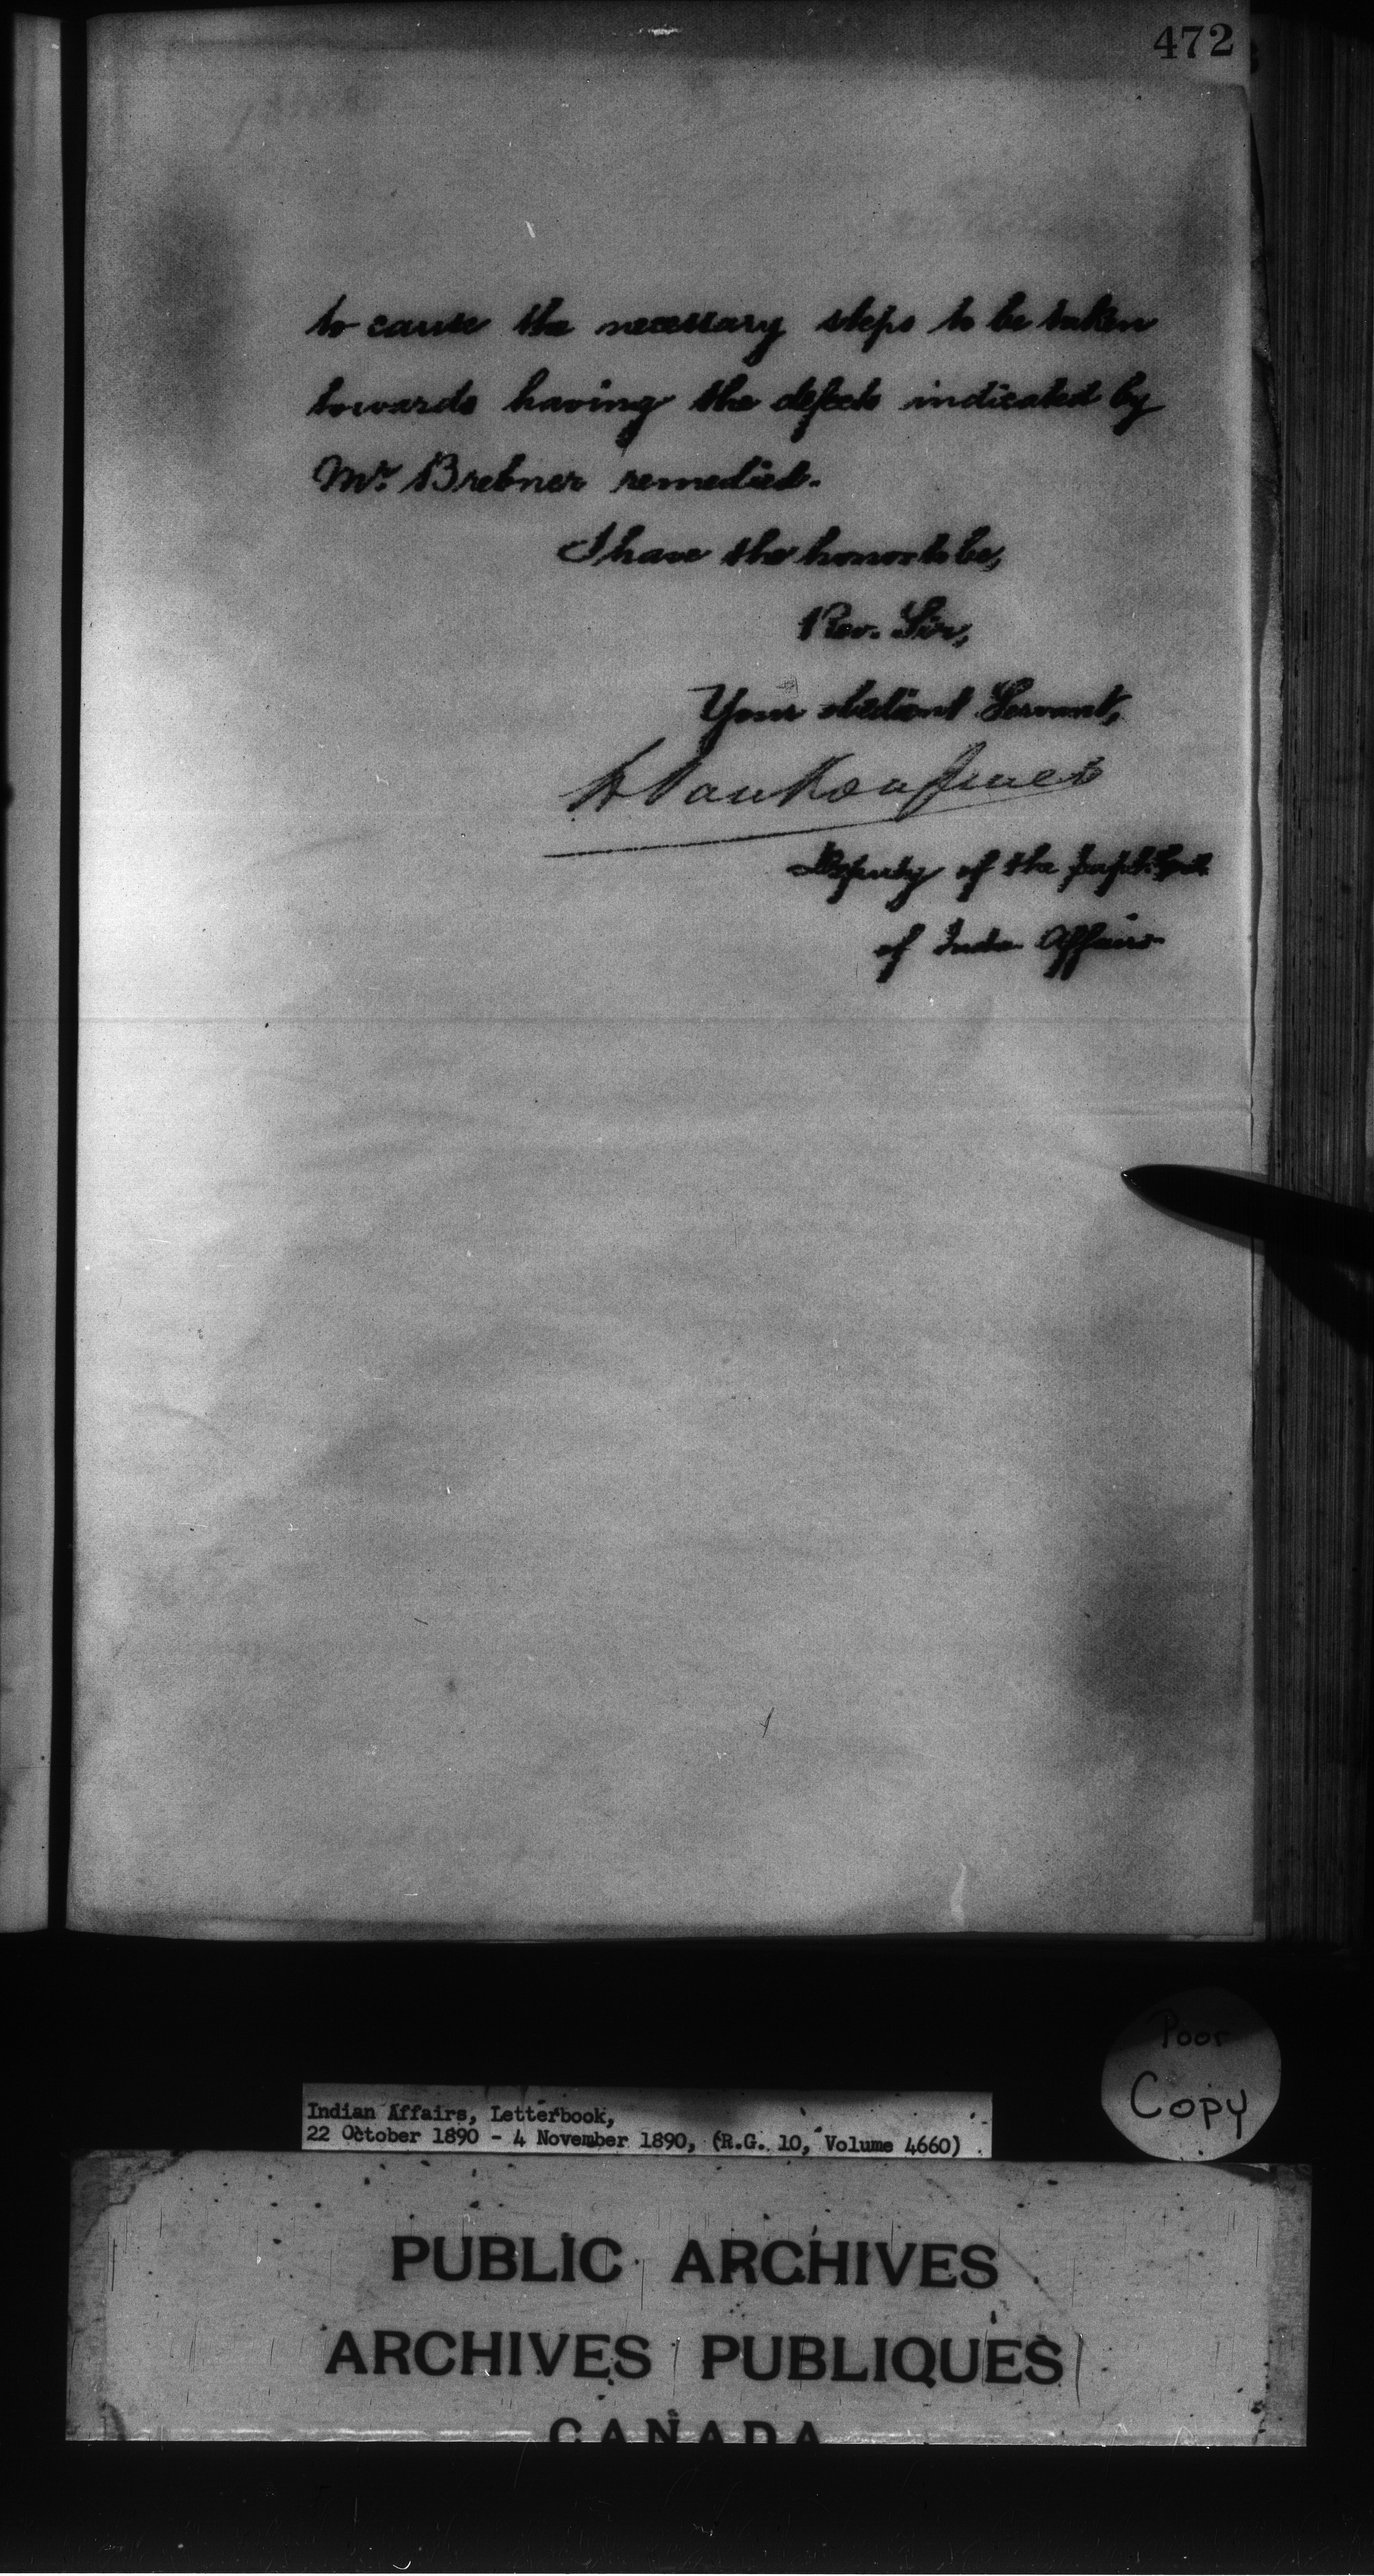 472
to cause the necessary steps to be taken
towards having the defects indicated by
Mr. Brebner remedied.
I have the honor to be,
Rev. Sir,
Your obedient Servant,
L VanKoughnet
Deputy of the Supt. Genl.
of Indn. Affairs
Poor
Copy
Indian Affairs, Letterbook,
22 October 1890 - 4 November 1890, (R.G. 10, Volume 4660)
PUBLIC ARCHIVES
ARCHIVES PUBLIQUES
CANADA